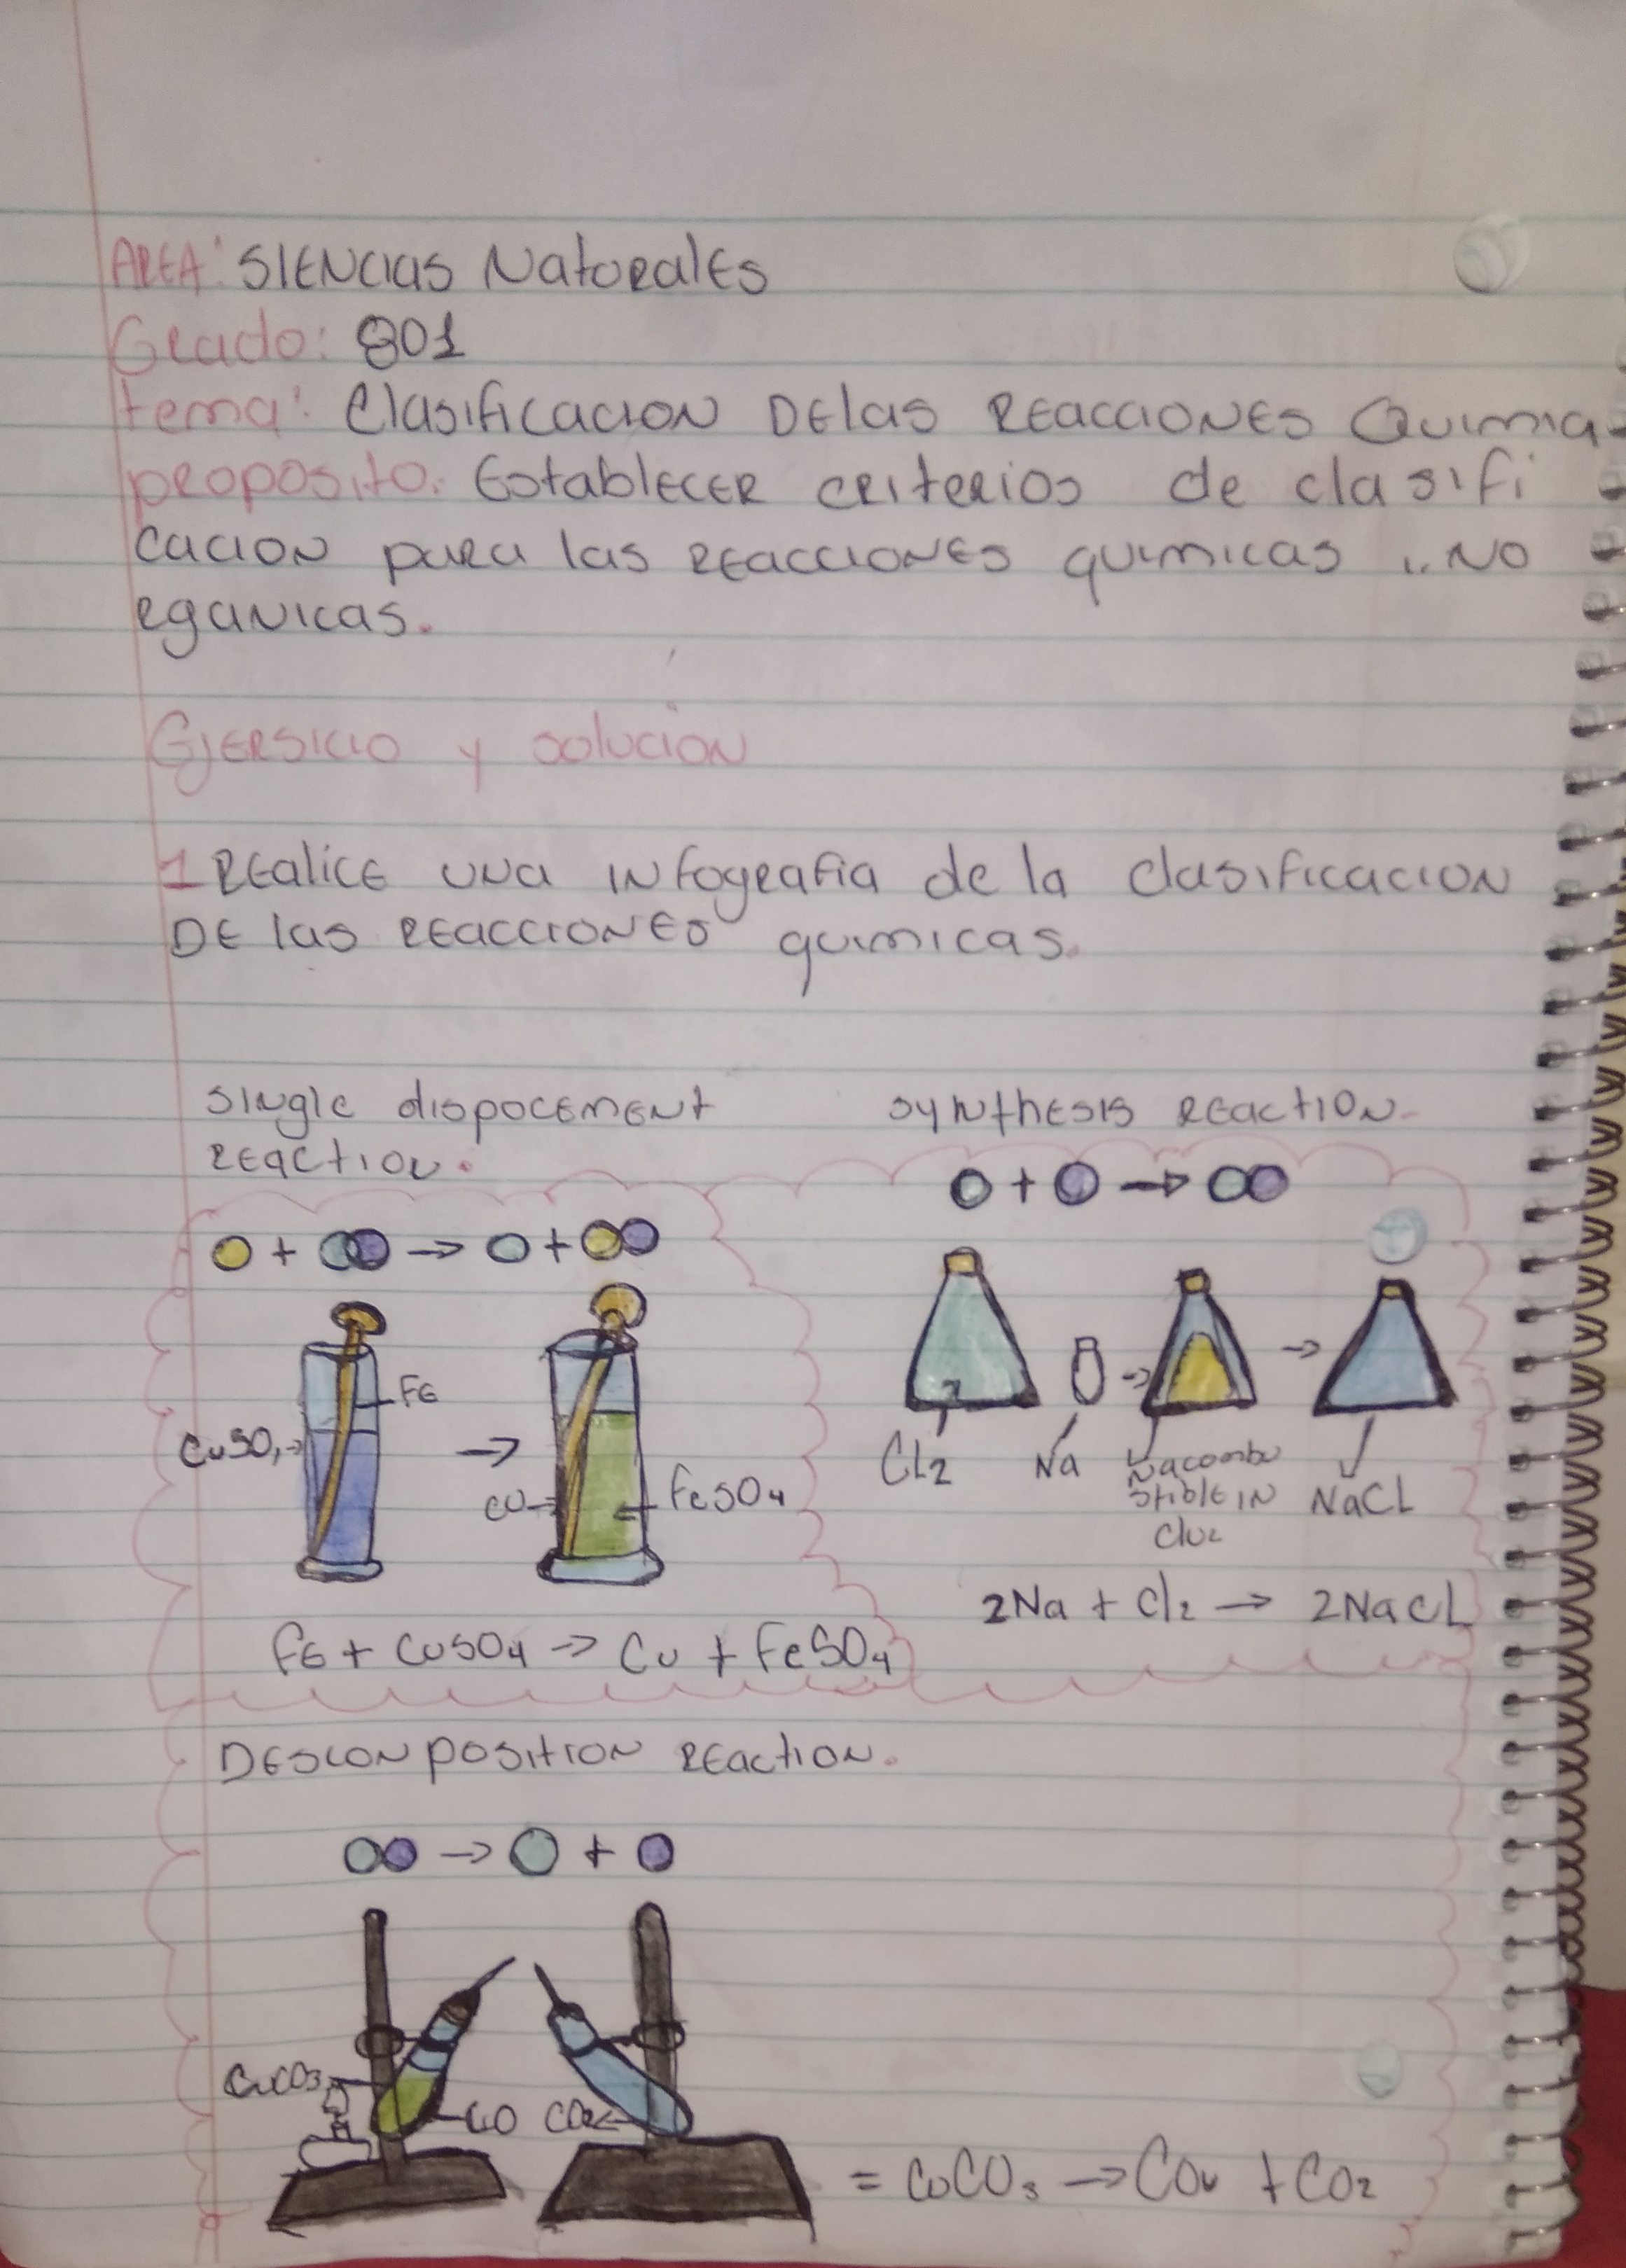 AREA: SIENCIAS Naturales
Grado: 801
tema: Clasificacion DElas REACCIONES Quimica
proposito: EstablECER criterios de clasifi
cacion para las REACCIONES quimicas i..NO
rganicas.
EjERSicio y solucion
1 REalicE una infografia de la clasificacion
DE las REACCIONES quimicas.
single dispocement
reaction.
synthesis reaction.
+ →
+ → +
FE
CuSO4 →
→
Cu
FeSO4
→
→
Cl2
Na
Nacombu
stible IN
Clu2
NaCL
2Na + Cl2 → 2NaCL
FE + CuSO4 → Cu + FeSO4
DESCONPOSITION REACTION.
→ +
CuCO3
CO2
= CuCO3 → COu + CO2